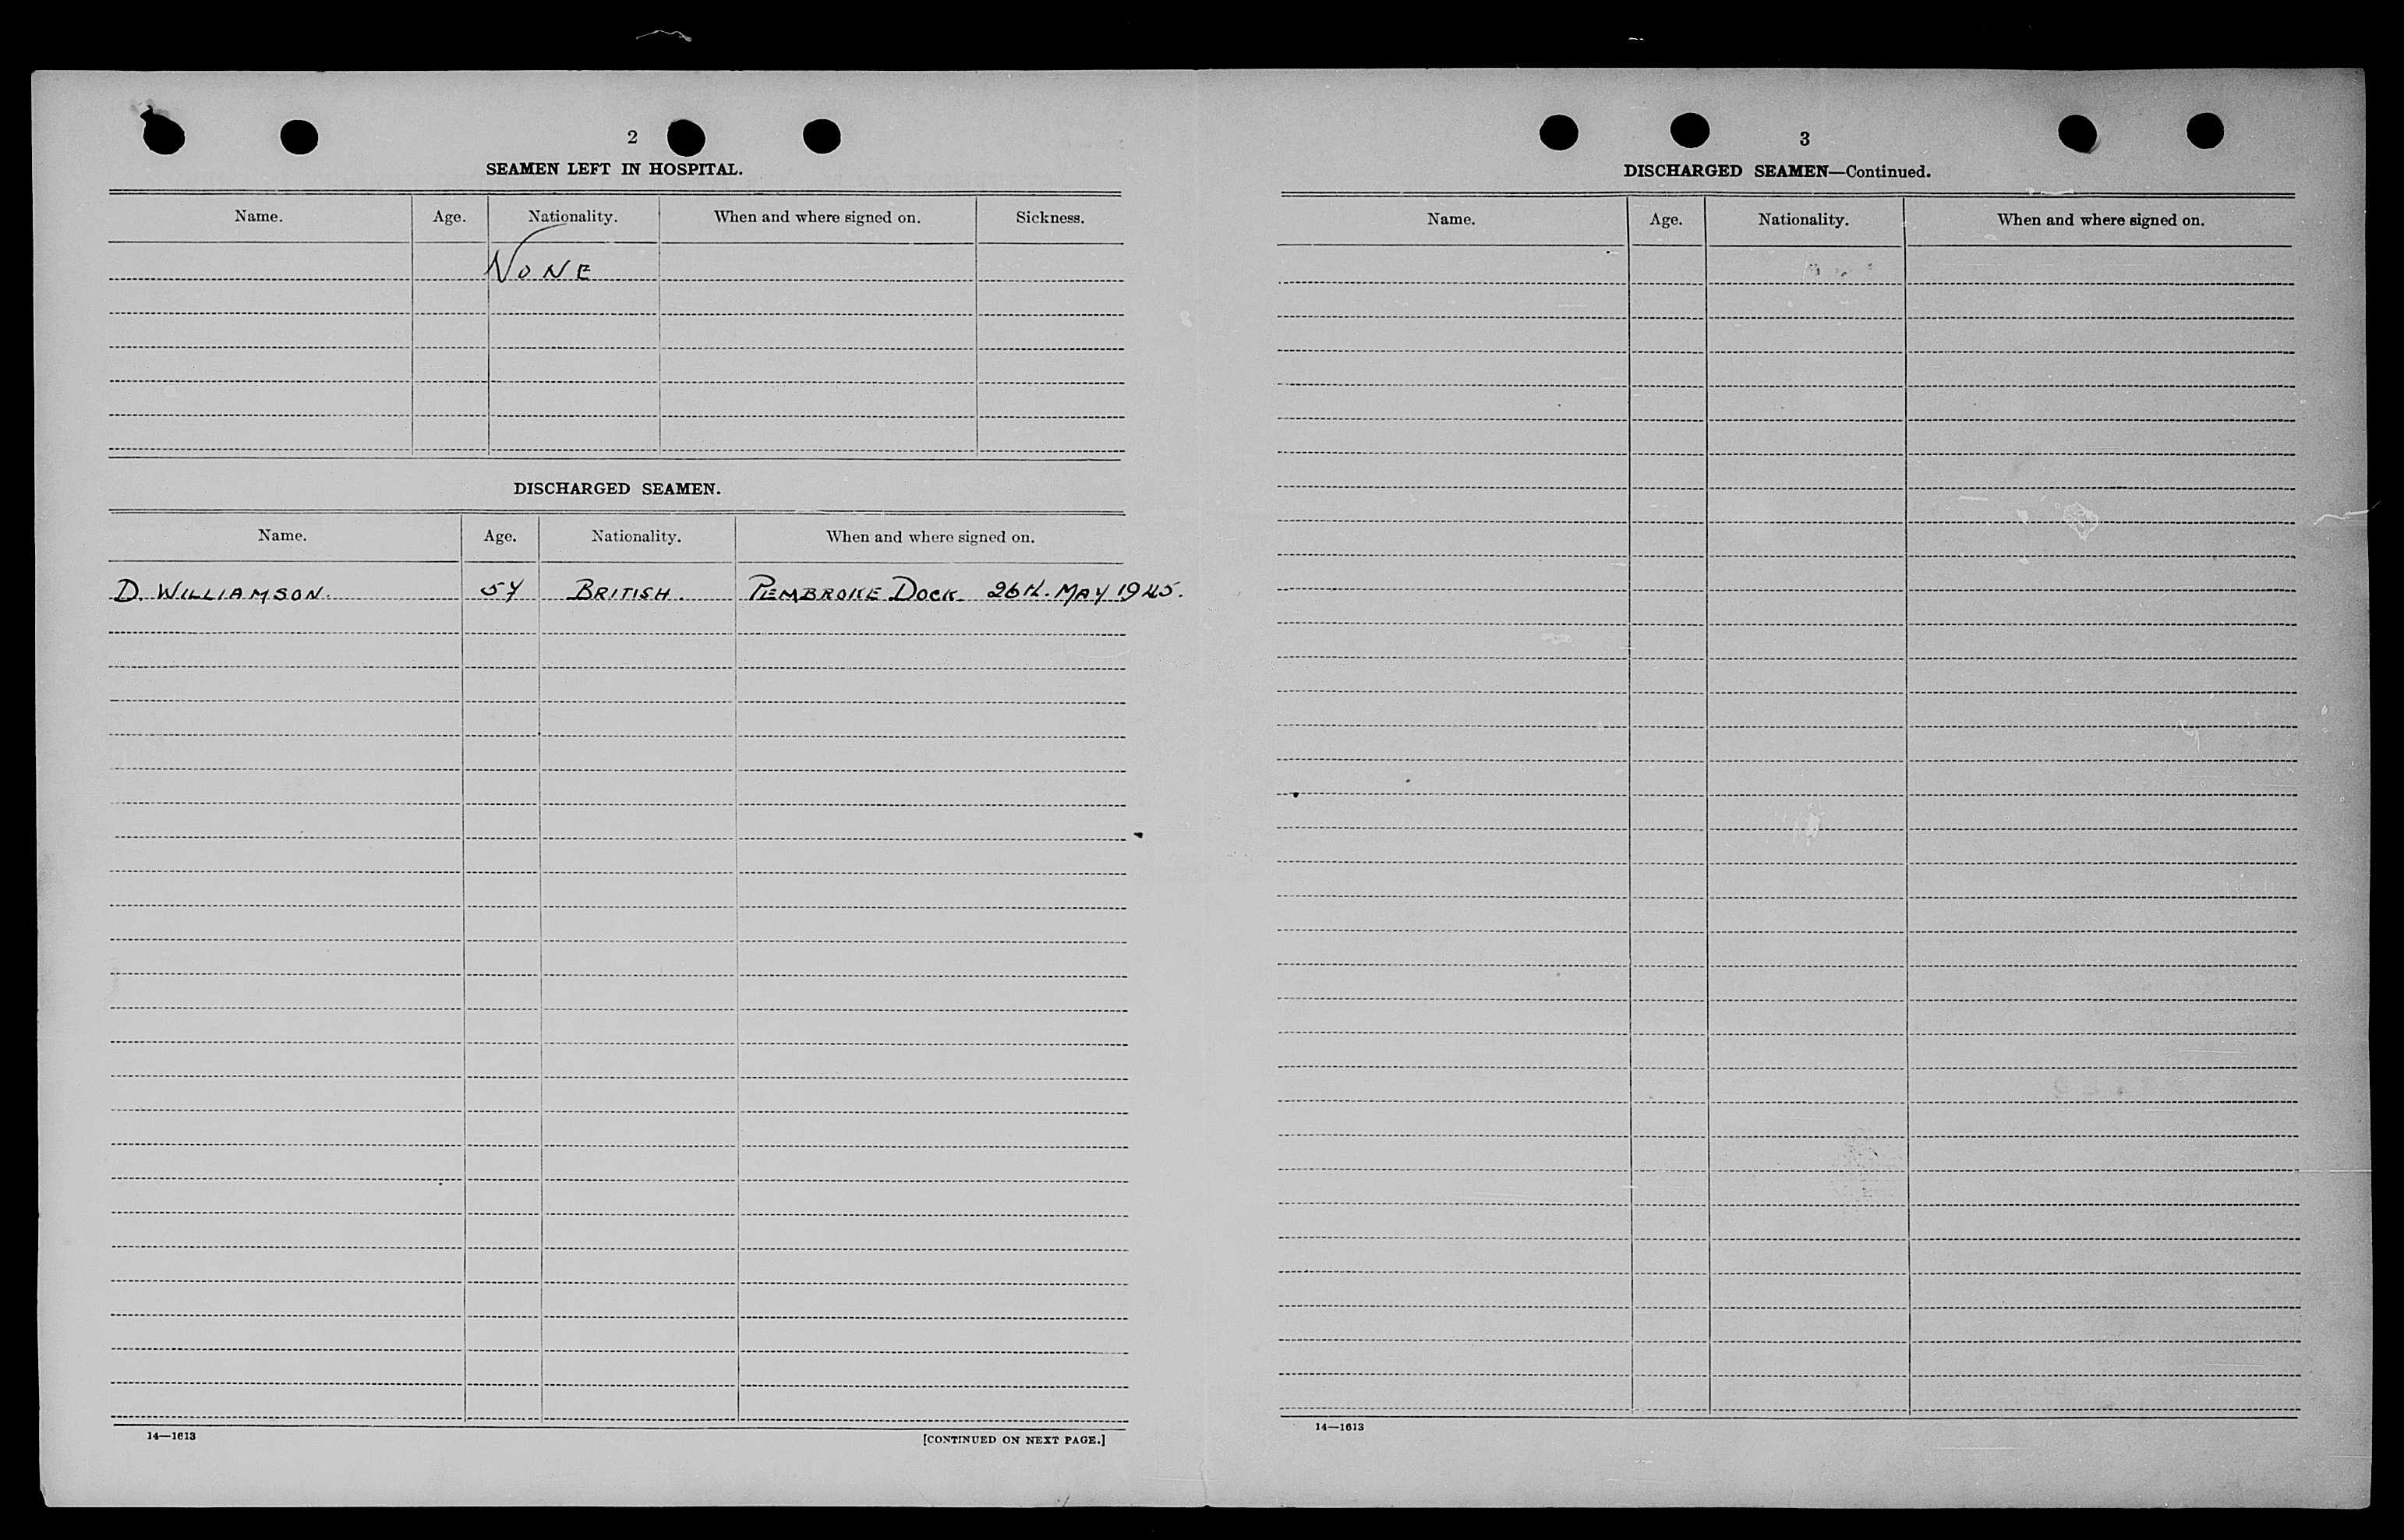 2
SEAMEN LEFT IN HOSPITAL.
Name. Age. Nationality. When and where signed on. Sickness.
NONE
DISCHARGED SEAMEN.
Name. Age. Nationality. When and where signed on.
D. WILLIAMSON. 57 BRITISH. PEMBROKE DOCK 26th. MAY 1945.
14—1613
[CONTINUED ON NEXT PAGE.]
3
DISCHARGED SEAMEN—Continued.
Name. Age. Nationality. When and where signed on.
14—1613